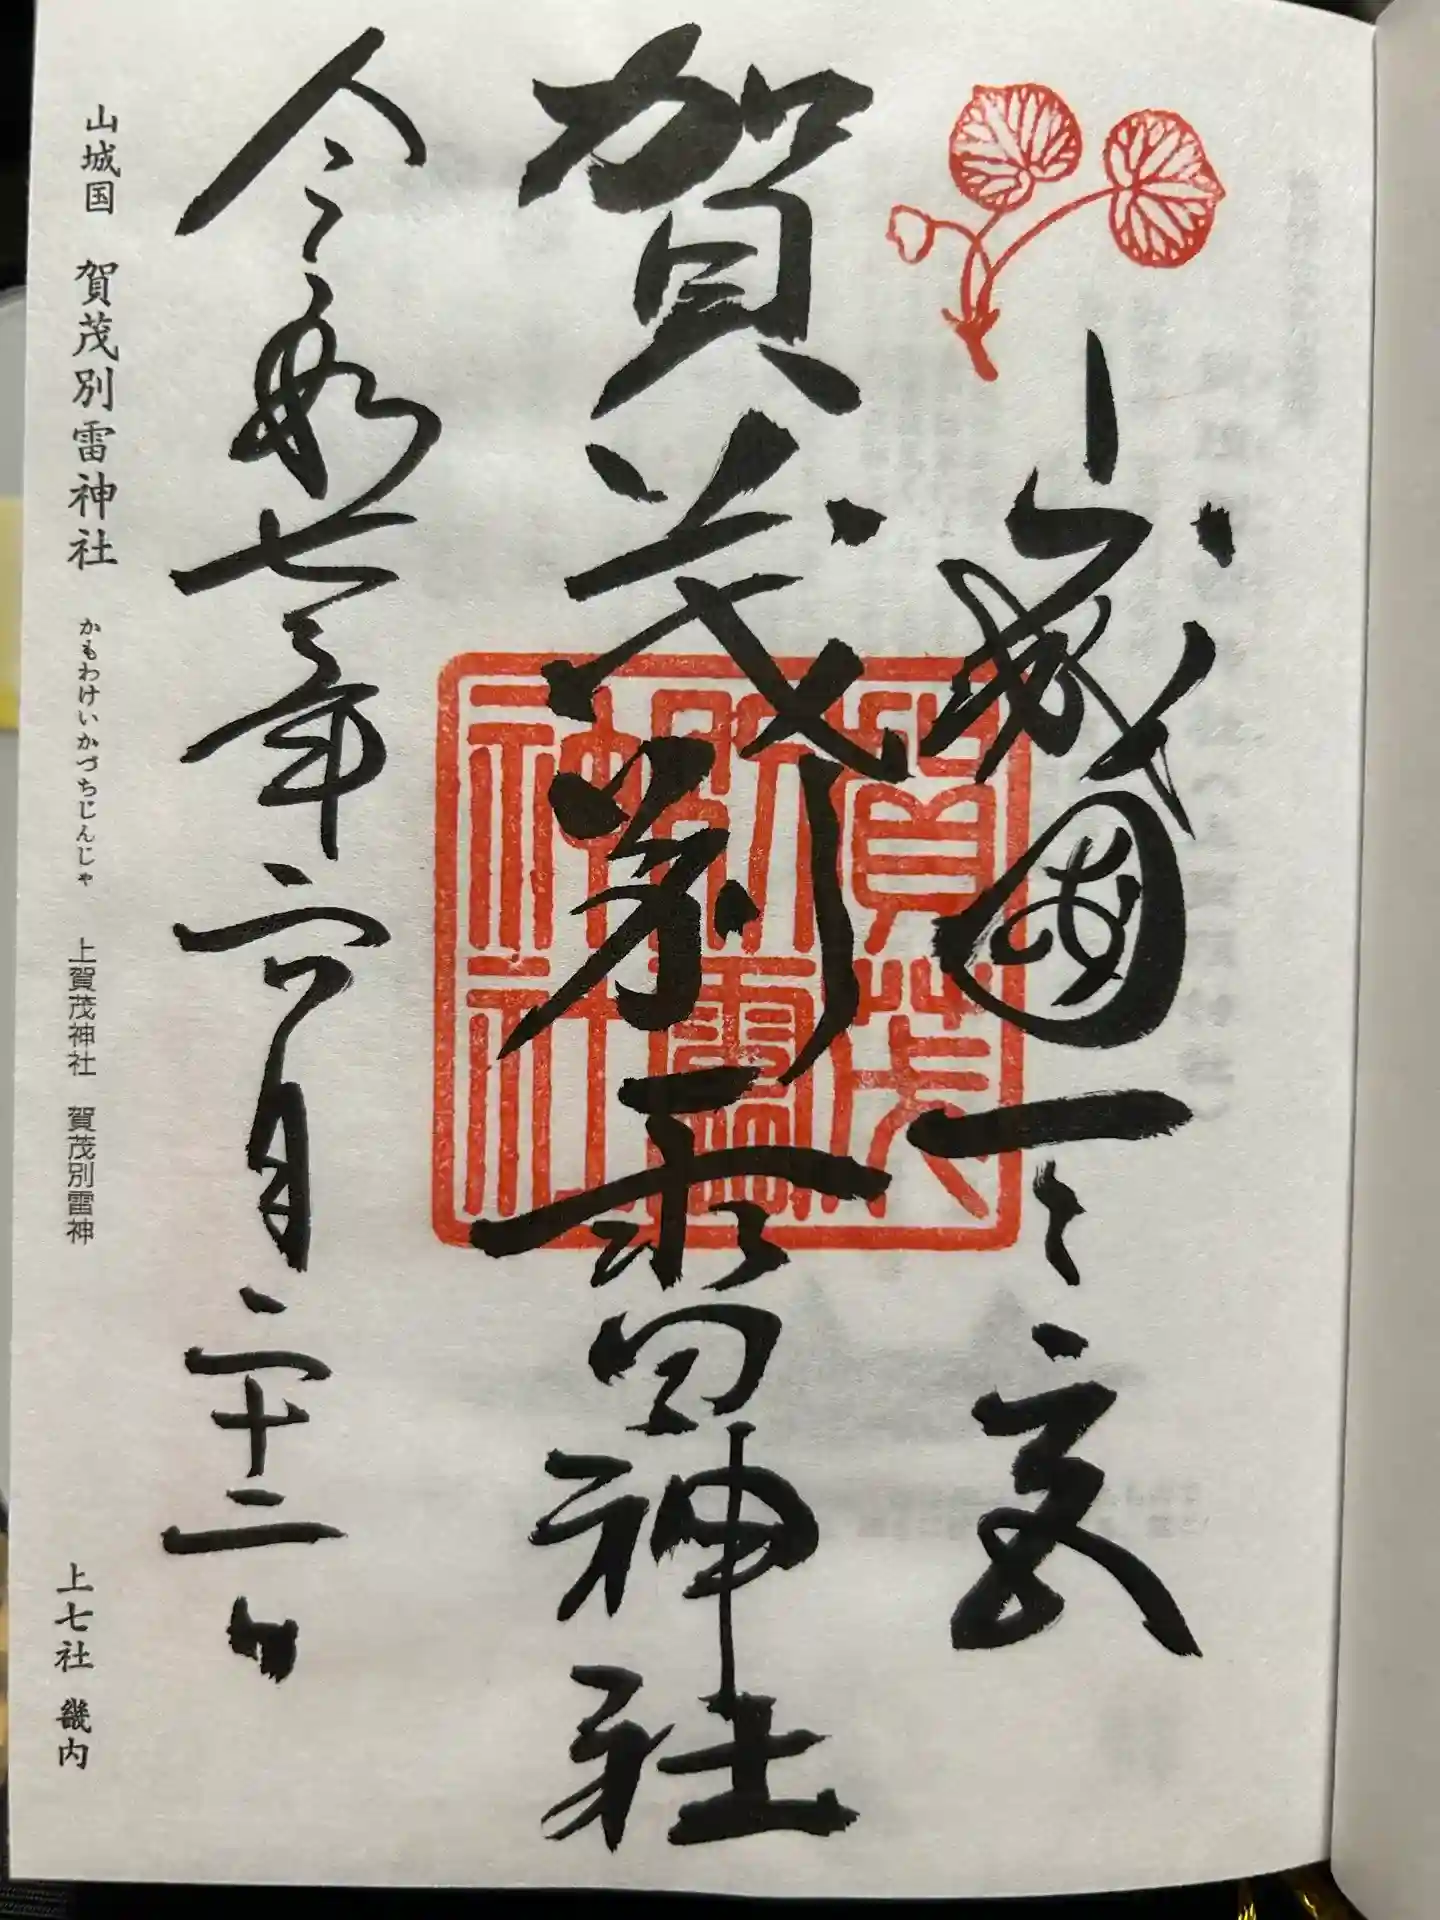 山城國一之宮
賀茂別雷神社
賀茂別雷神社
令和七年六月二十二日
山城国 賀茂別雷神社 かもわけいかづちじんじゃ 上賀茂神社 賀茂別雷神 上七社 畿内